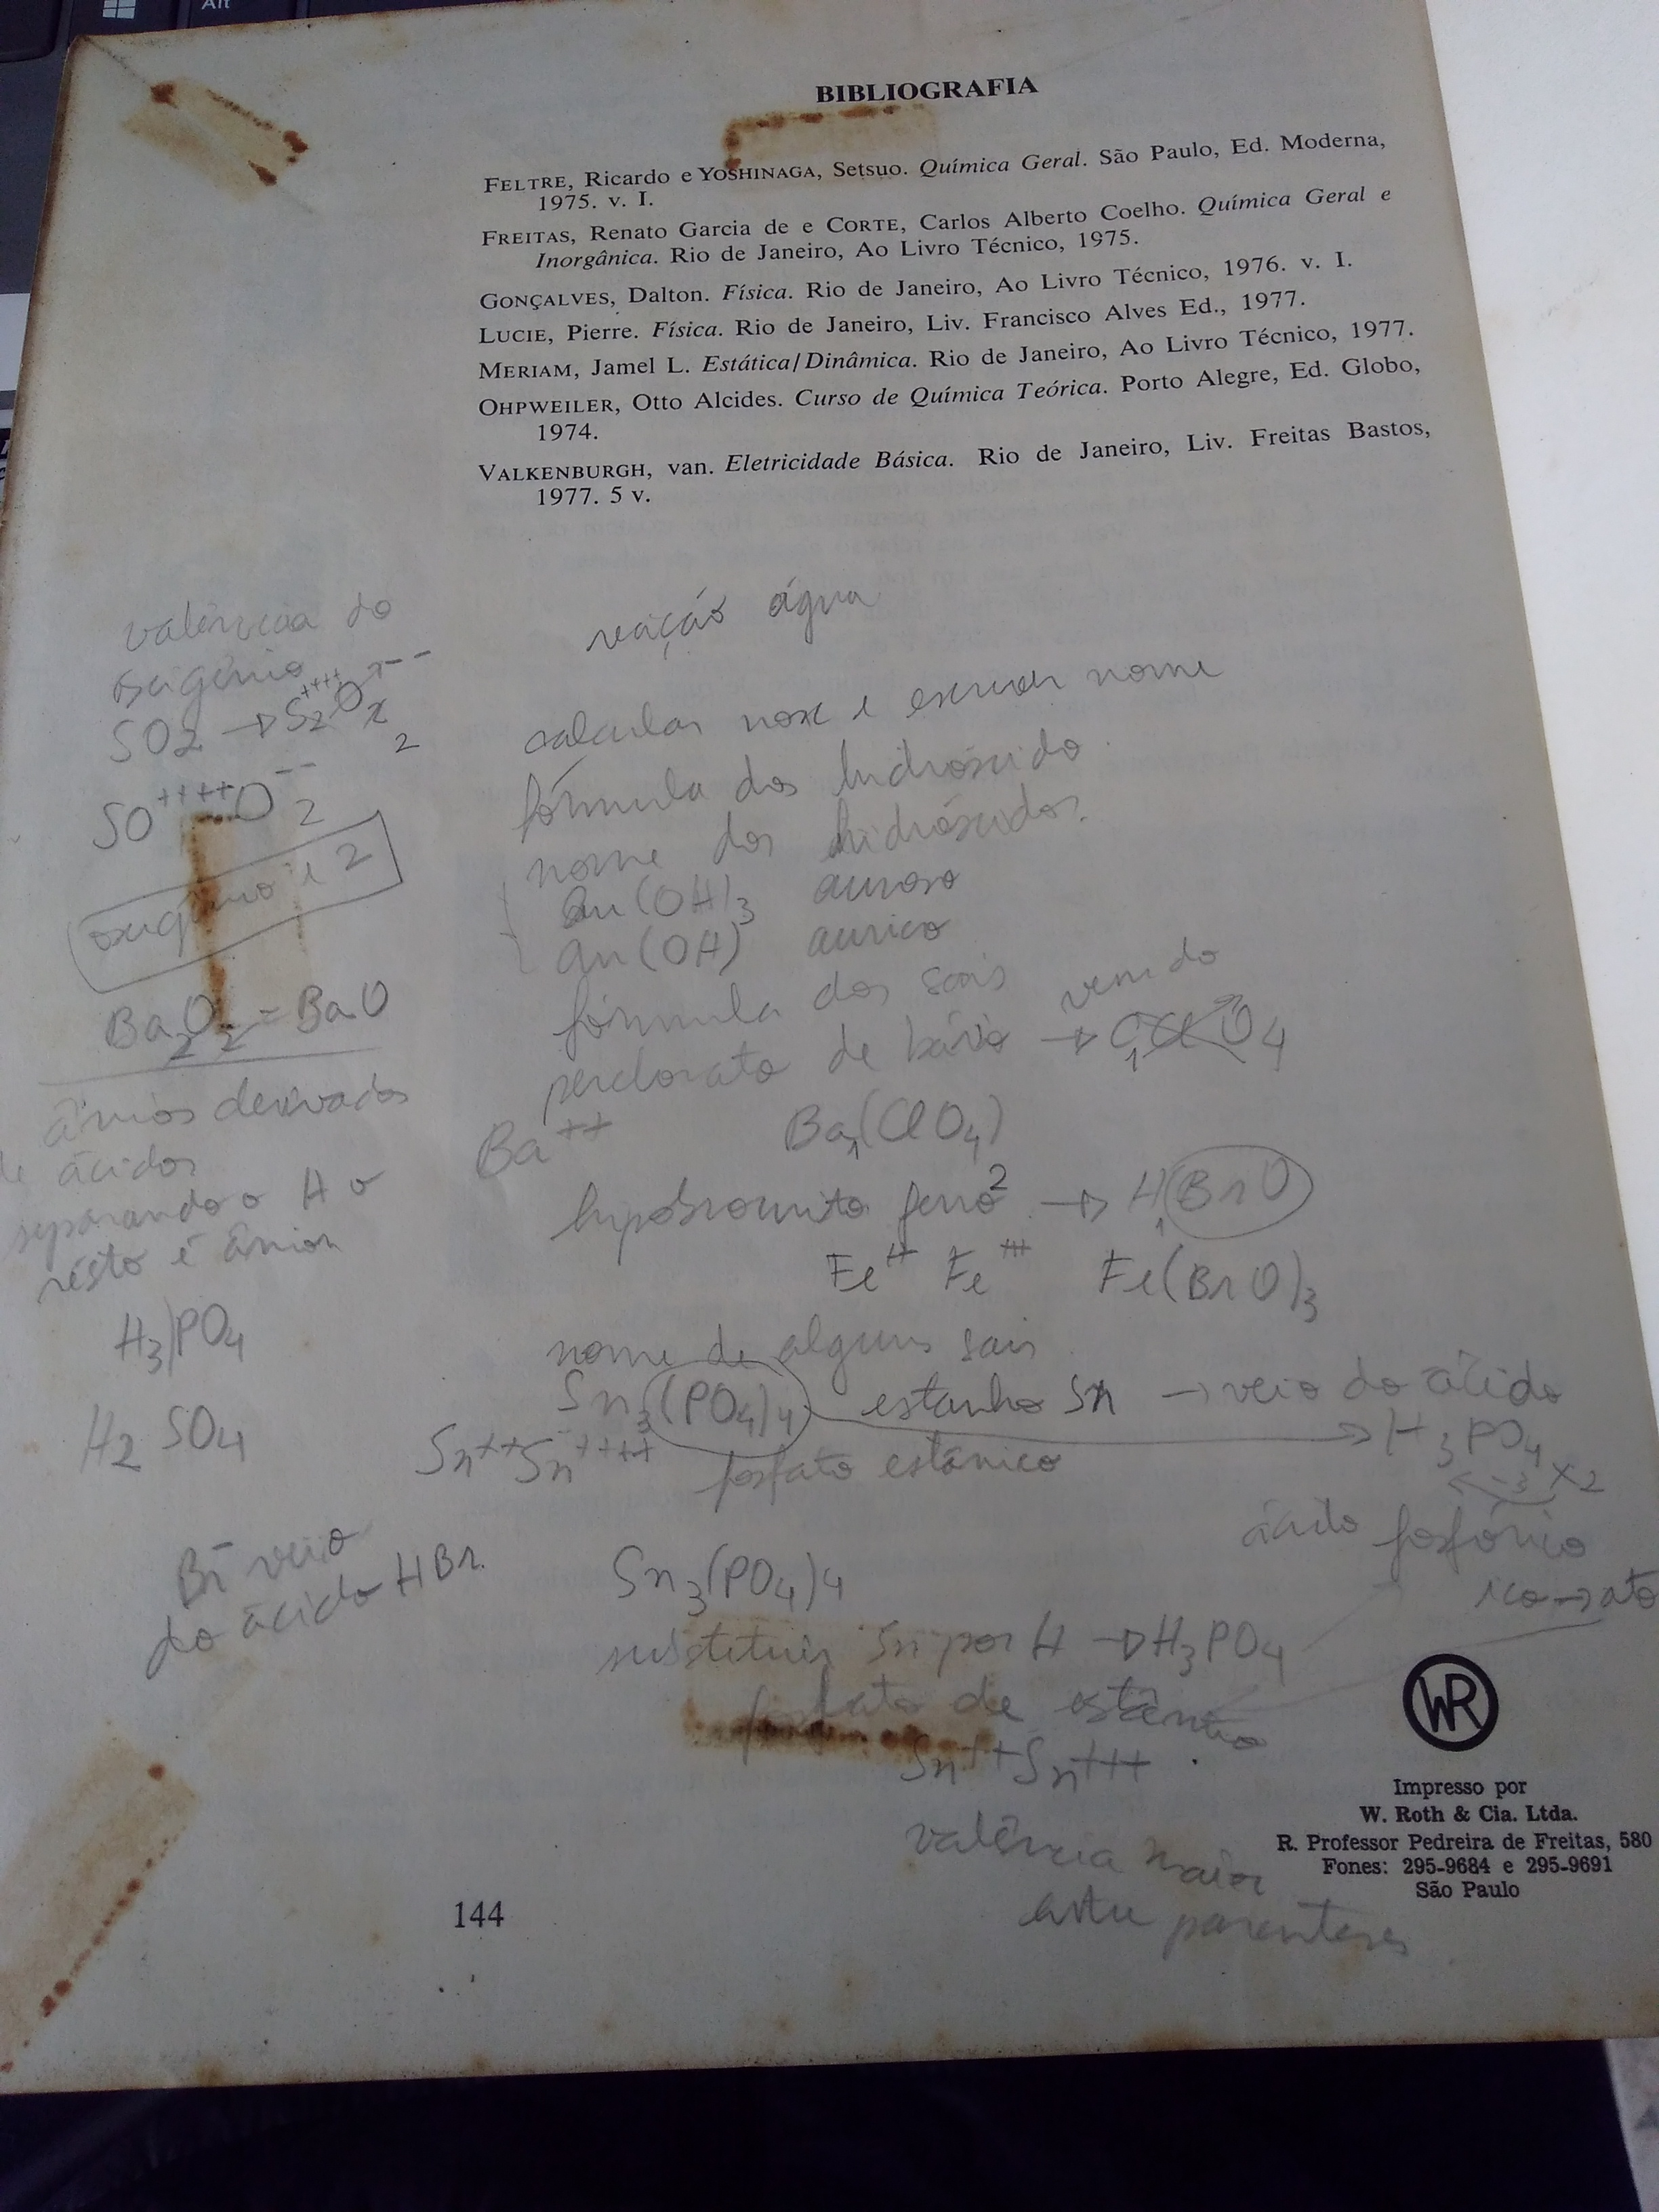 Alt
BIBLIOGRAFIA
FELTRE, Ricardo e YOSHINAGA, Setsuo. Química Geral. São Paulo, Ed. Moderna,
1975. v. I.
FREITAS, Renato Garcia de e CORTE, Carlos Alberto Coelho. Química Geral e
Inorgânica. Rio de Janeiro, Ao Livro Técnico, 1975.
GONÇALVES, Dalton. Física. Rio de Janeiro, Ao Livro Técnico, 1976. v. I.
LUCIE, Pierre. Física. Rio de Janeiro, Liv. Francisco Alves Ed., 1977.
MERIAM, Jamel L. Estática/Dinâmica. Rio de Janeiro, Ao Livro Técnico, 1977.
OHPWEILER, Otto Alcides. Curso de Química Teórica. Porto Alegre, Ed. Globo,
1974.
VALKENBURGH, van. Eletricidade Básica. Rio de Janeiro, Liv. Freitas Bastos,
1977. 5 v.
valência do
oxigênio
SO2 → S2++++Ox-- 2
SO++++O--2
oxigênio é 2
Ba2O2 = BaO
ânios derivados
de ácidos
separando o H o
resto é ânion
H3)PO4
H2 SO4
Br- veio
do ácido HBr.
reação água
calcular nox e escrever nome
fórmula dos hidróxido
nome dos hidróxidos.
au(OH)3 auroso
au(OH) aurico
fórmula dos sais vem do
perclorato de bário → ClO4
Ba++ Ba1(ClO4)
hipobromito ferro2 → H1(BrO)
Fe++ Fe+++ Fe(BrO)3
nome de alguns sais
Sn3(PO4)4 estanho Sn → veio do ácido
H3PO4
Sn++ Sn++++ fosfato estânico
-3 x2
ácido fosfórico
ico→ato
Sn3(PO4)4
substituir Sn por H → H3PO4
fosfato de estânho
Sn++ Sn+++
valência maior
entre parenteses
WR
Impresso por
W. Roth & Cia. Ltda.
R. Professor Pedreira de Freitas, 580
Fones: 295-9684 e 295-9691
São Paulo
144